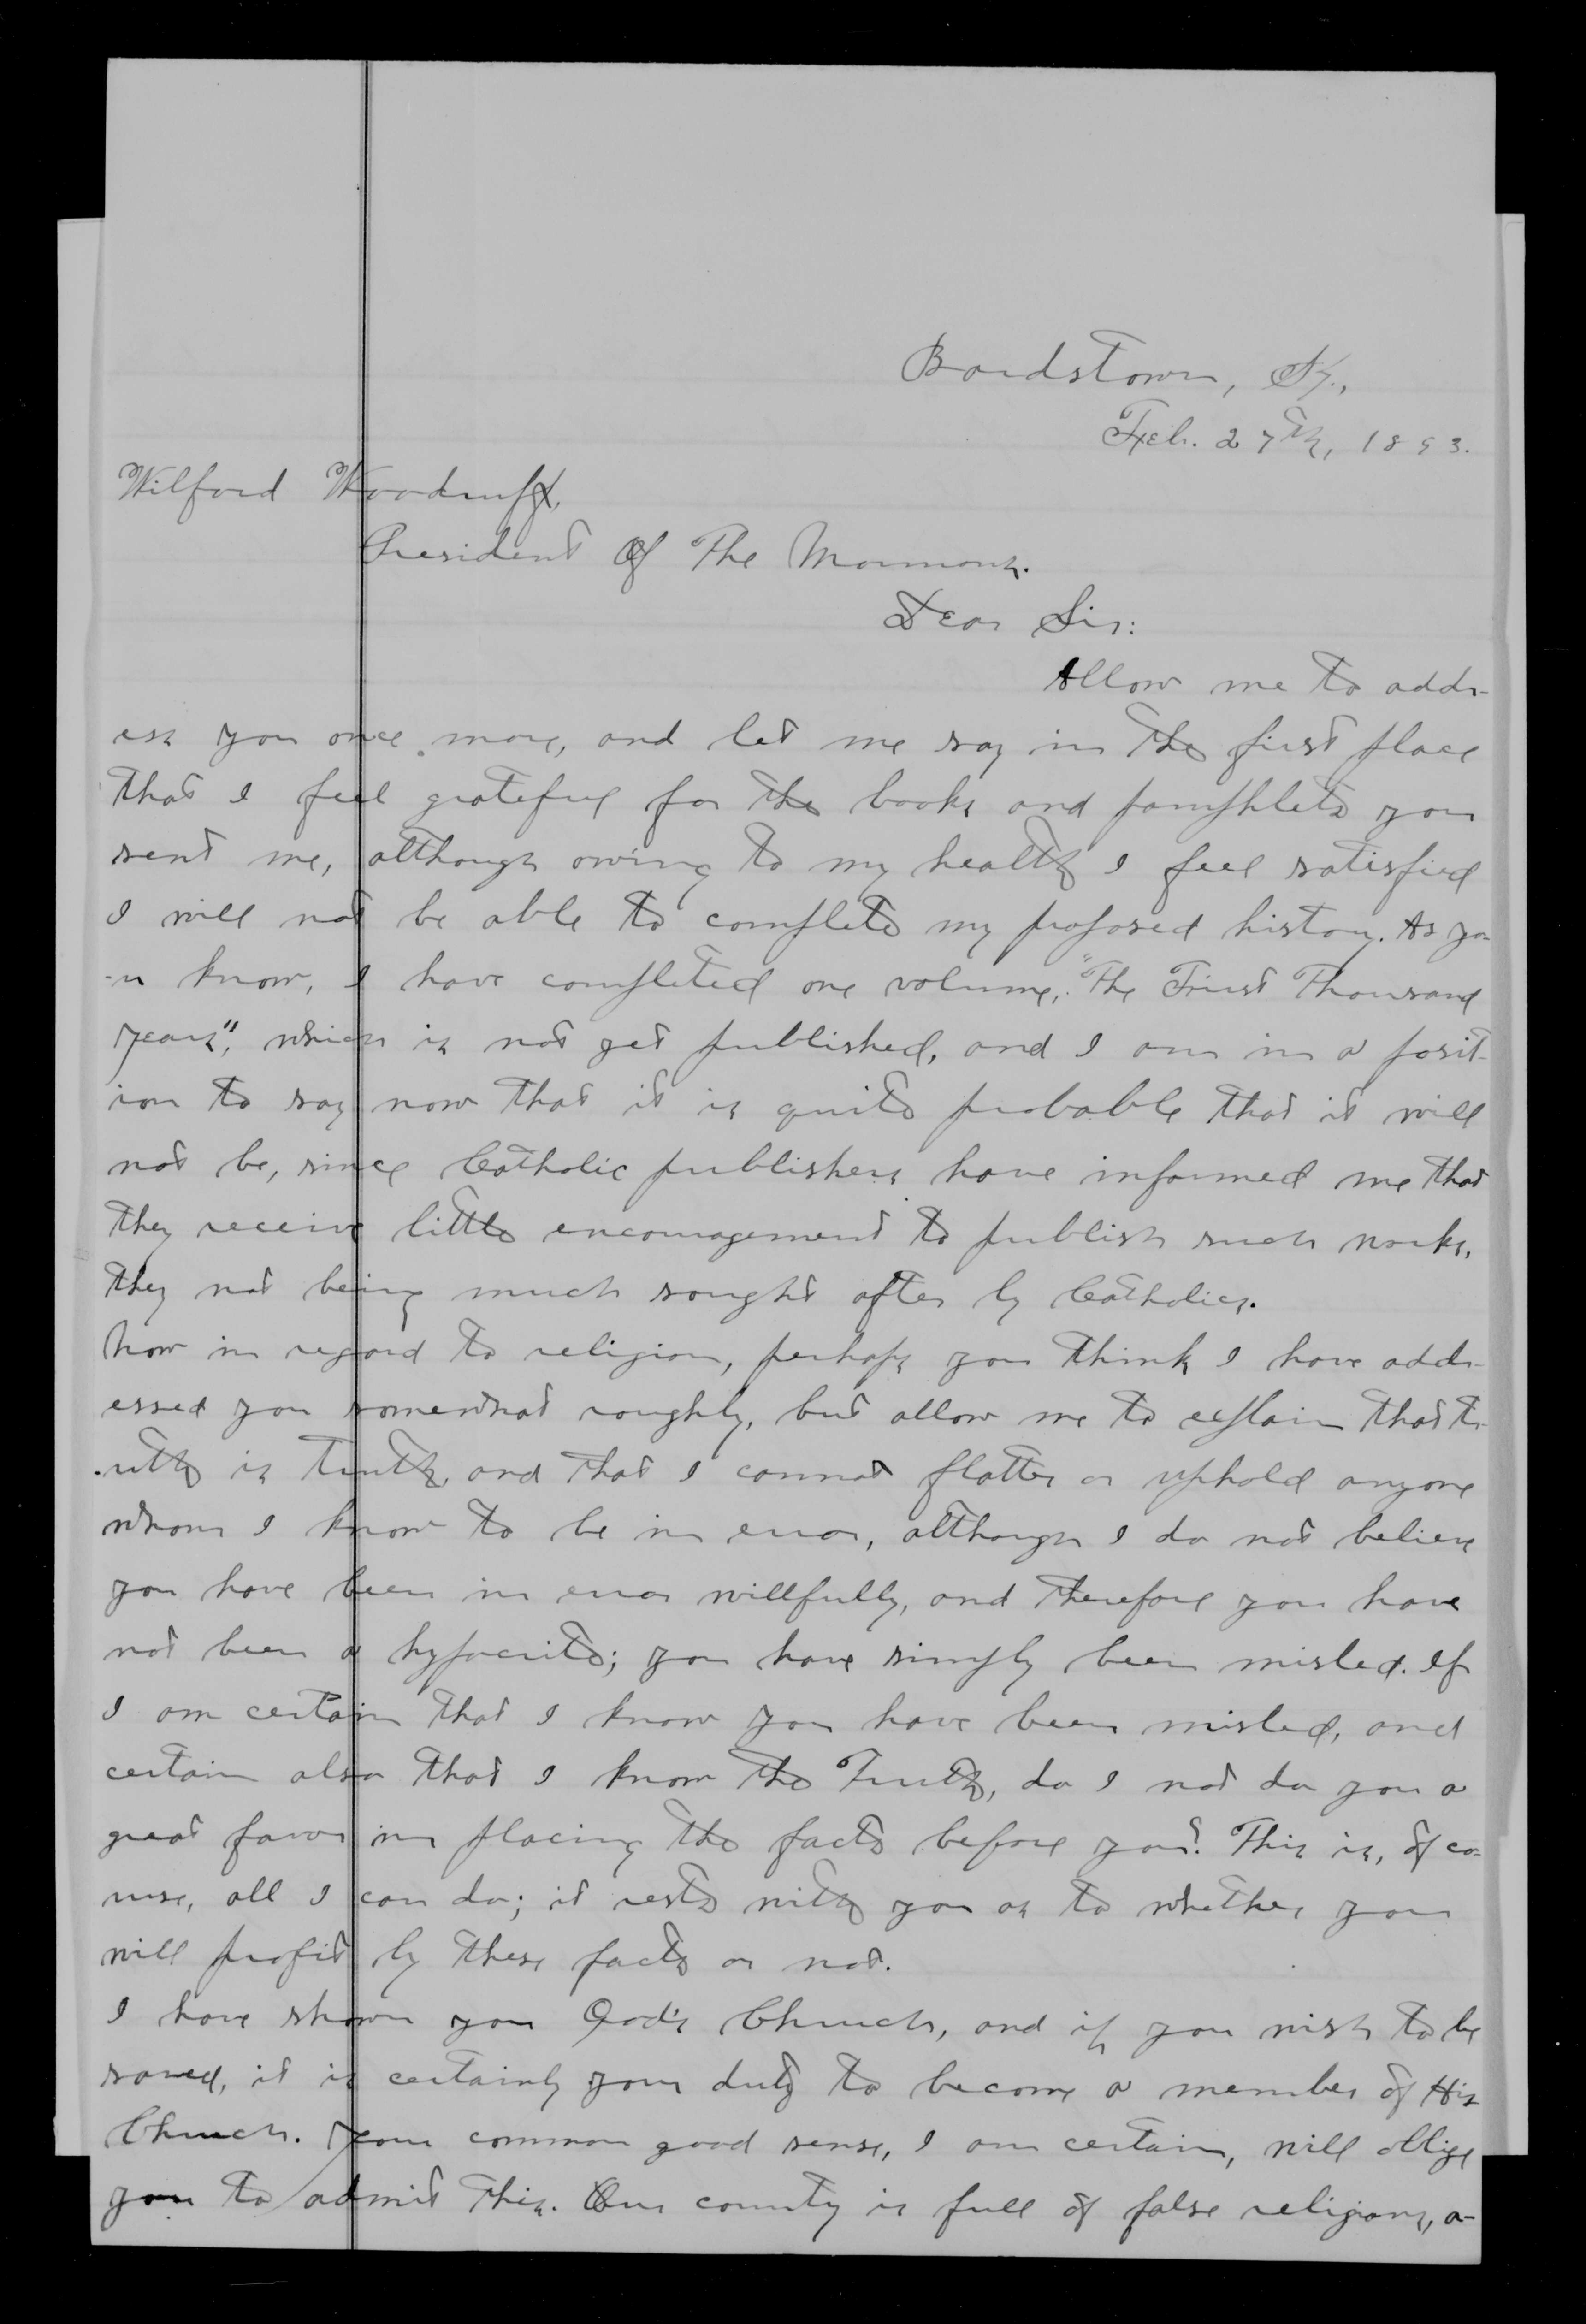 Bardstown, Ky.,
Feb. 27th, 1893.
Wilford Woodruff,
President Of The Mormons.
Dear Sir:
Allow me to addr-
ess you once more, and let me say in the first place
that I feel grateful for the books and pamphlets you
sent me, although owing to my health I feel satisfied
I will not be able to complete my proposed history. As yo-
-u know, I have completed one volume, "The First Thousand
Years", which is not yet published, and I am in a posit-
ion to say now that it is quite probable that it will
not be, since Catholic publishers have informed me that
they receive little encouragement to publish such works,
they not being much sought after by Catholics.
Now in regard to religion, perhaps you think I have addr-
essed you somewhat roughly, but allow me to explain that tr-
-uth is Truth, and that I cannot flatter or uphold anyone
whom I know to be in error, although I do not believe
you have been in error willfully, and therefore you have
not been a hypocrite; you have simply been misled. If
I am certain that I know you have been misled, and
certain also that I know the Truth, do I not do you a
great favor in placing the facts before you? This is, of co-
urse, all I can do; it rests with you as to whether you
will profit by these facts or not.
I have shown you God's Church, and if you wish to be
saved, it is certainly your duty to become a member of His
Church. Your common good sense, I am certain, will oblige
you to admit this. Our country is full of false religions, a-